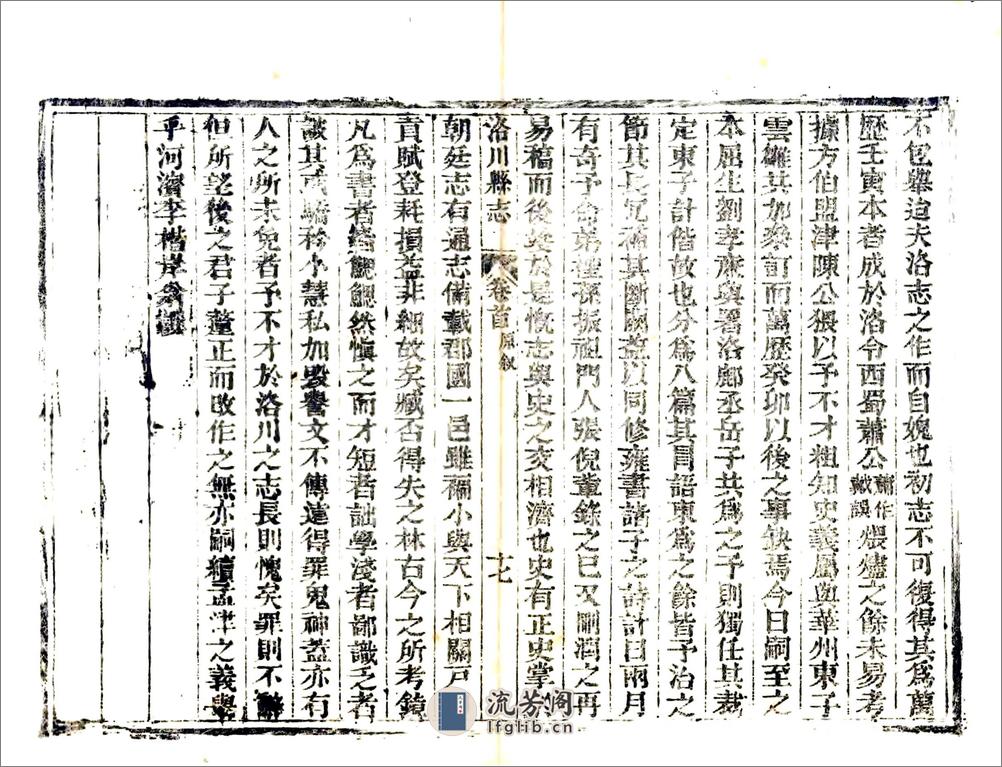 不包舉迨夫洛志之作而自媿也初志不可復得其爲萬
歷壬寅本者成於洛令西蜀蕭公蕭作戴誤煨燼之餘未易考
據方伯盟津陳公猥以予不才粗知史義屬與華州東子
雲雛其加叅訂而萬歷癸卯以後之事缺焉今日嗣至之
本屈生劉孝廉與署洛鄜丞岳子共爲之予則獨任其裁
定東子計偕故也分爲八篇其目語東爲之餘皆予治之
節其長冗補其斷闕益以同修雍書諸子之詩計日兩月
有奇予命弟煙孫振祖門人張倪董錄之已又刪潤之再
易稿而後竣於是慨志與史之交相濟也史有正史掌
洛川縣志
卷首 原叙
十七
朝廷志有通志備載郡國一邑雖褊小與天下相關戸
賁賦登耗損益非細故矣臧否得失之林古今之所考鏡
凡爲書者鰓鰓然慎之而才短者詘學淺者鄙識乏者
諛其或驕矜小慧私加毀譽文不傳遠得罪鬼神蓋亦有
人之所未免者予不才於洛川之志長則愧矣罪則不辭
但所望後之君子董正而改作之無亦嗣續孟津之義與
平河濱李楷岸翁譔
流芳阁
lfglib.cn